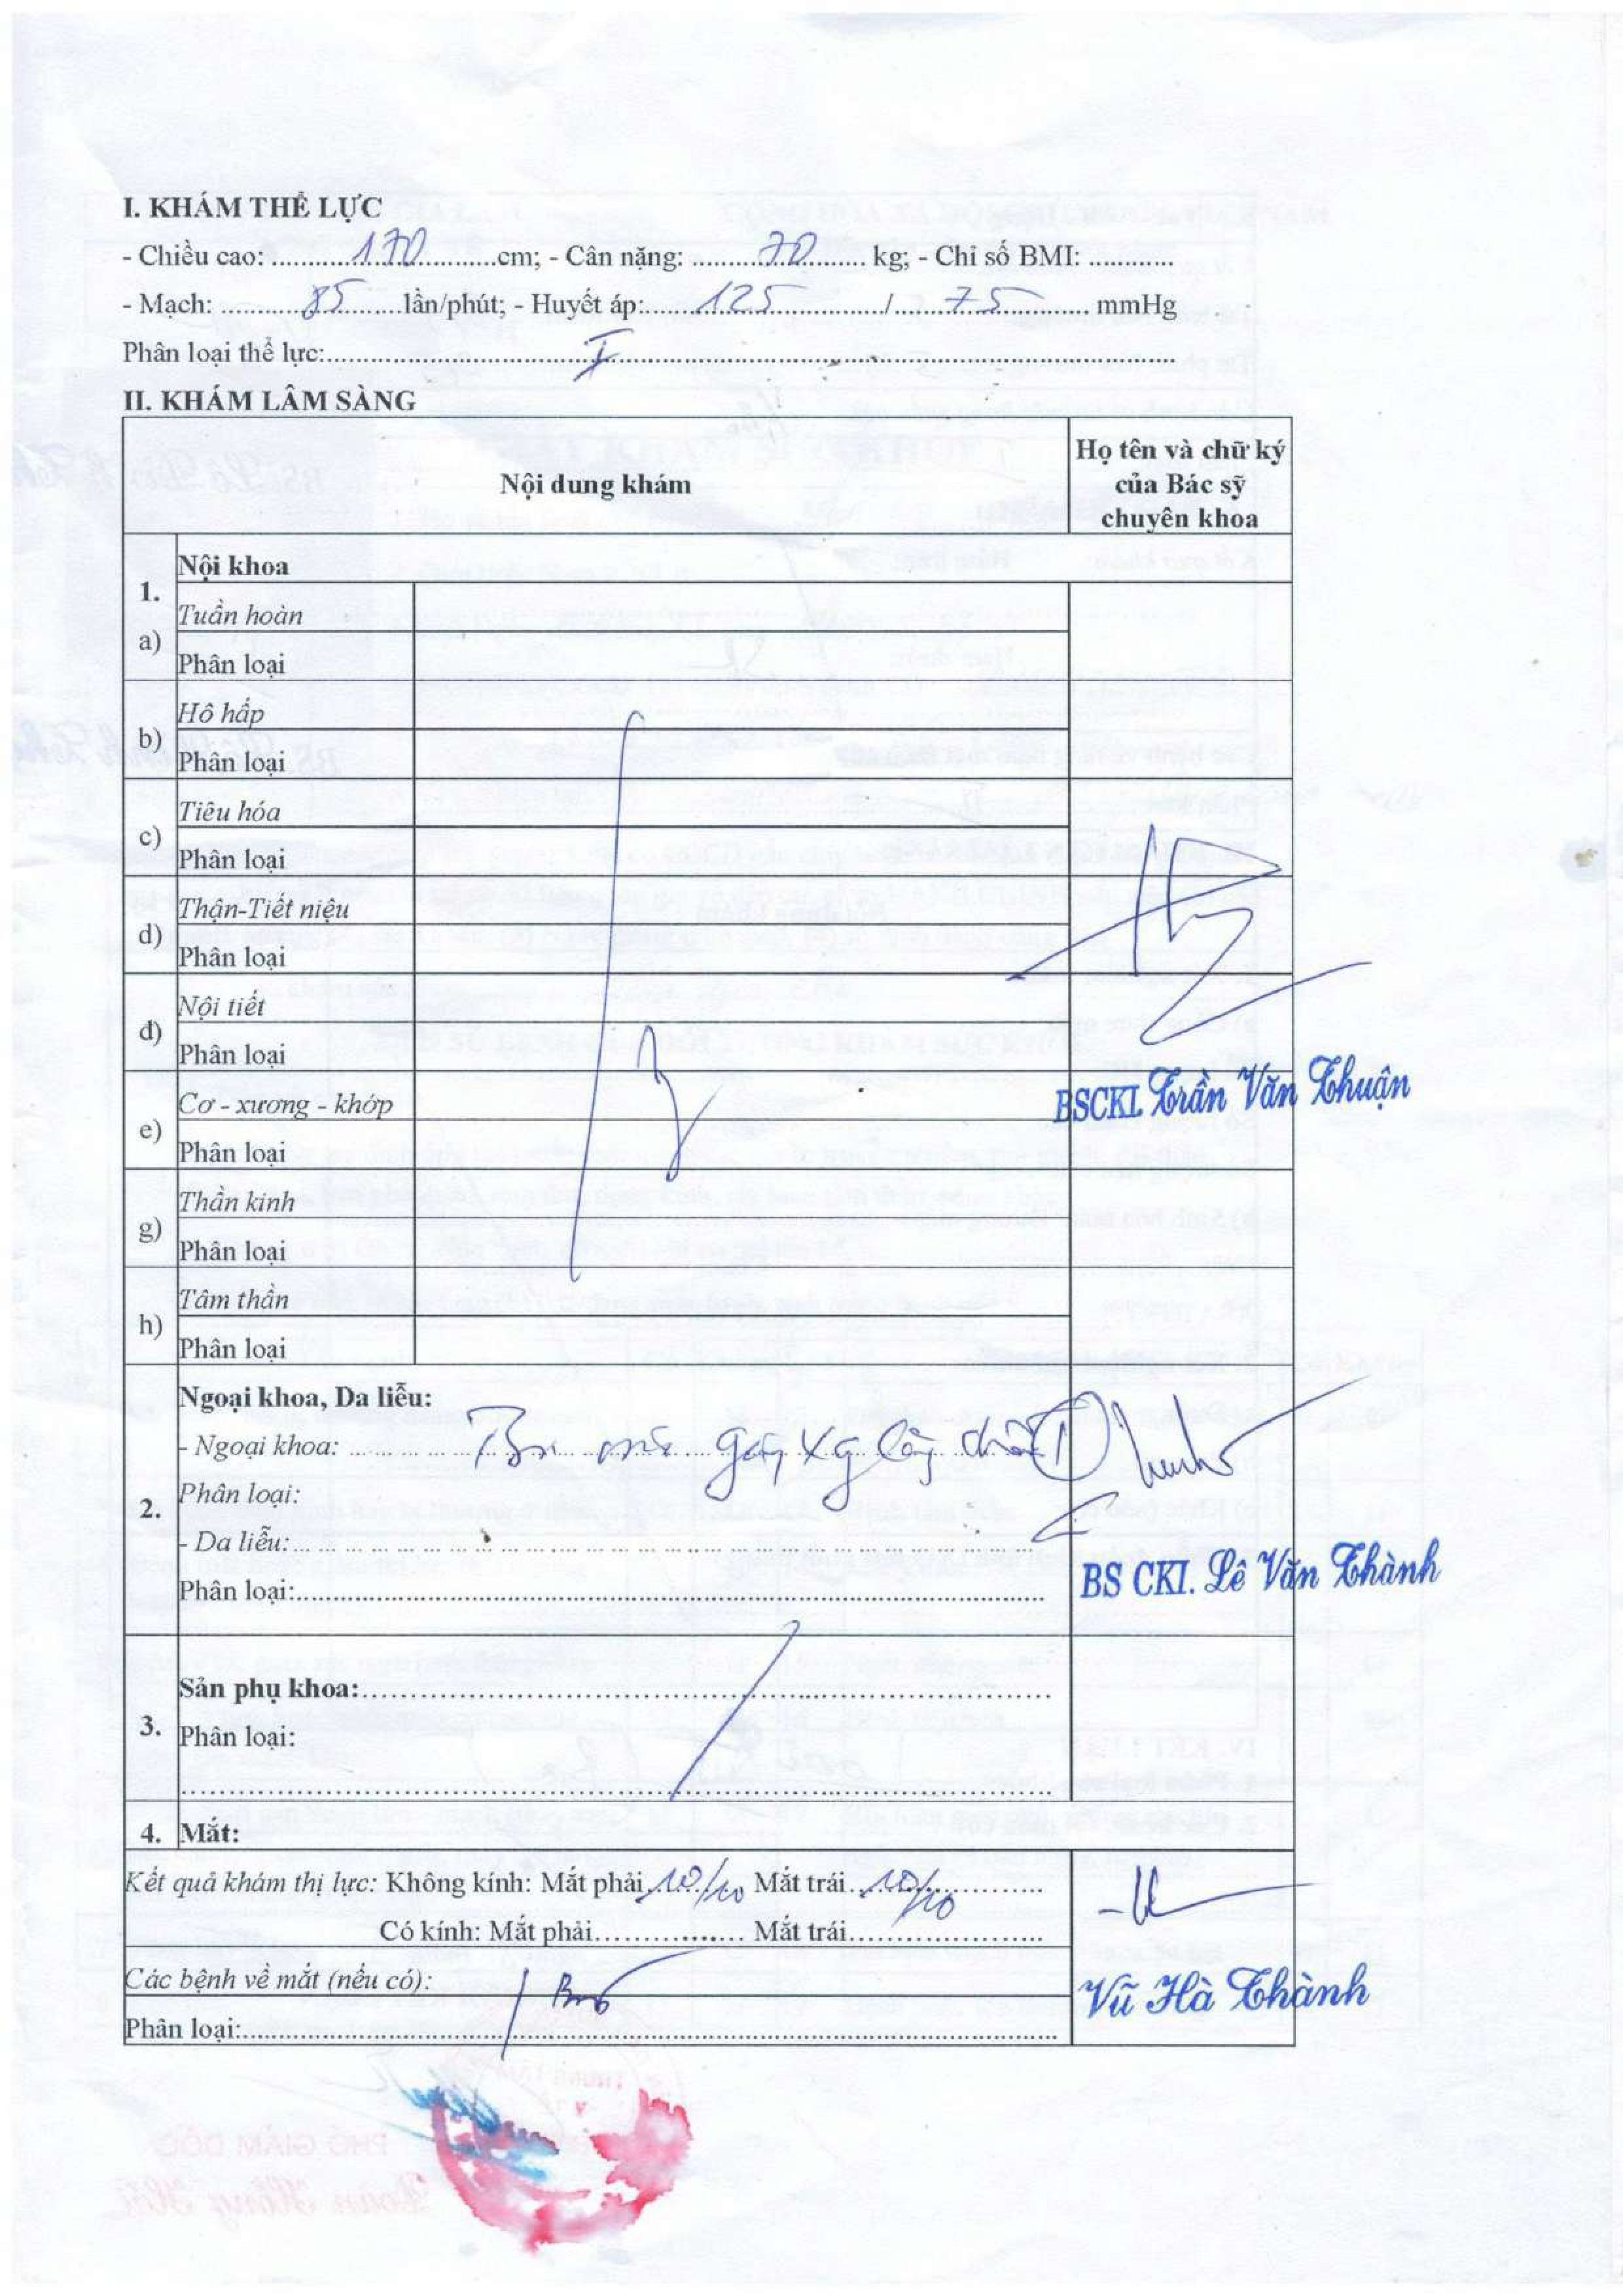 I. KHÁM THỂ LỰC
- Chiều cao: 170 cm; - Cân nặng: 70 kg; - Chỉ số BMI: ............
- Mạch: 85 lần/phút; - Huyết áp: 125 / 75 mmHg
Phân loại thể lực: I
II. KHÁM LÂM SÀNG
Nội dung khám
Họ tên và chữ ký của Bác sỹ chuyên khoa
1. Nội khoa
a) Tuần hoàn
Phân loại
b) Hô hấp
Phân loại
c) Tiêu hóa
Phân loại
d) Thận-Tiết niệu
Phân loại
d) Nội tiết
Phân loại
e) Cơ - xương - khớp
Phân loại
g) Thần kinh
Phân loại
h) Tâm thần
Phân loại
BSCKI. Trần Văn Thuận
2. Ngoại khoa, Da liễu:
- Ngoại khoa: gãy xg cẳng chân
Phân loại:
- Da liễu:
Phân loại:
BS CKI. Lê Văn Thành
3. Sản phụ khoa:
Phân loại:
4. Mắt:
Kết quả khám thị lực: Không kính: Mắt phải 10/10 Mắt trái 10/10
Có kính: Mắt phải Mắt trái
Các bệnh về mắt (nếu có):
Phân loại:
Vũ Hà Thành